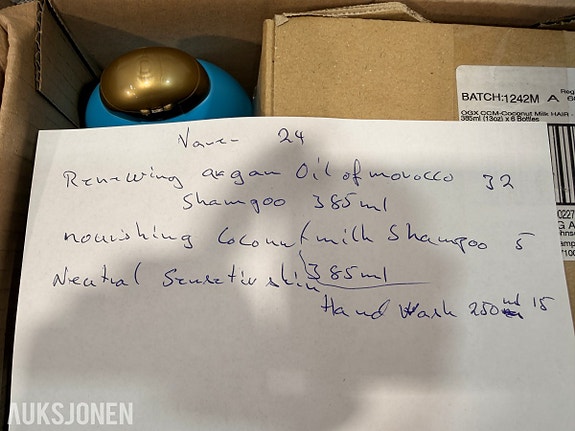 BATCH:1242M A
OGX CCM-Coconut Milk HAIR -
385ml (13oz) x 6 Bottles
Vare 24
Renewing argan Oil of morocco 32
Shampoo 385ml
nourishing Coconut milk Shampoo 5
385ml
Neutral Sensetiv skin
Hand Wash 250 ml 15
AUKSJONEN